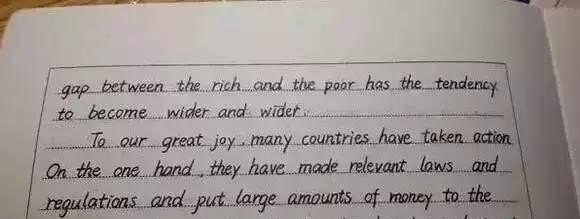 gap between the rich and the poor has the tendency
to become wider and wider.
To our great joy, many countries have taken action
On the one hand, they have made relevant laws and
regulations and put large amounts of money to the